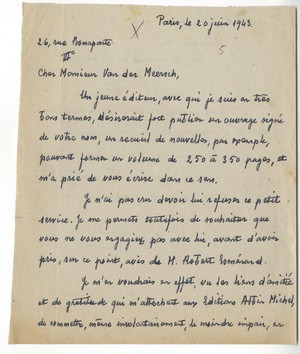 Paris, le 20 juin 1943.
26, rue Bonaparte
VIe
5
Cher Monsieur Van der Meersch,
Un jeune éditeur, avec qui je suis en très
bons termes, désirerait fort publier un ouvrage signé
de votre nom, un recueil de nouvelles, par exemple,
pouvant former un volume de 250 à 350 pages, et
m'a prié de vous écrire dans ce sens.
Je n'ai pas cru devoir lui refuser ce petit
service. Je me permets toutefois de souhaiter que
vous ne vous engagiez pas avec lui, avant d'avoir
pris, sur ce point, avis de M. Robert Esménard.
Je m'en voudrais en effet, vu les liens d'amitié
et de gratitude qui m'attachent aux Editions Albin Michel,
de commettre, même involontairement, le moindre impair, en